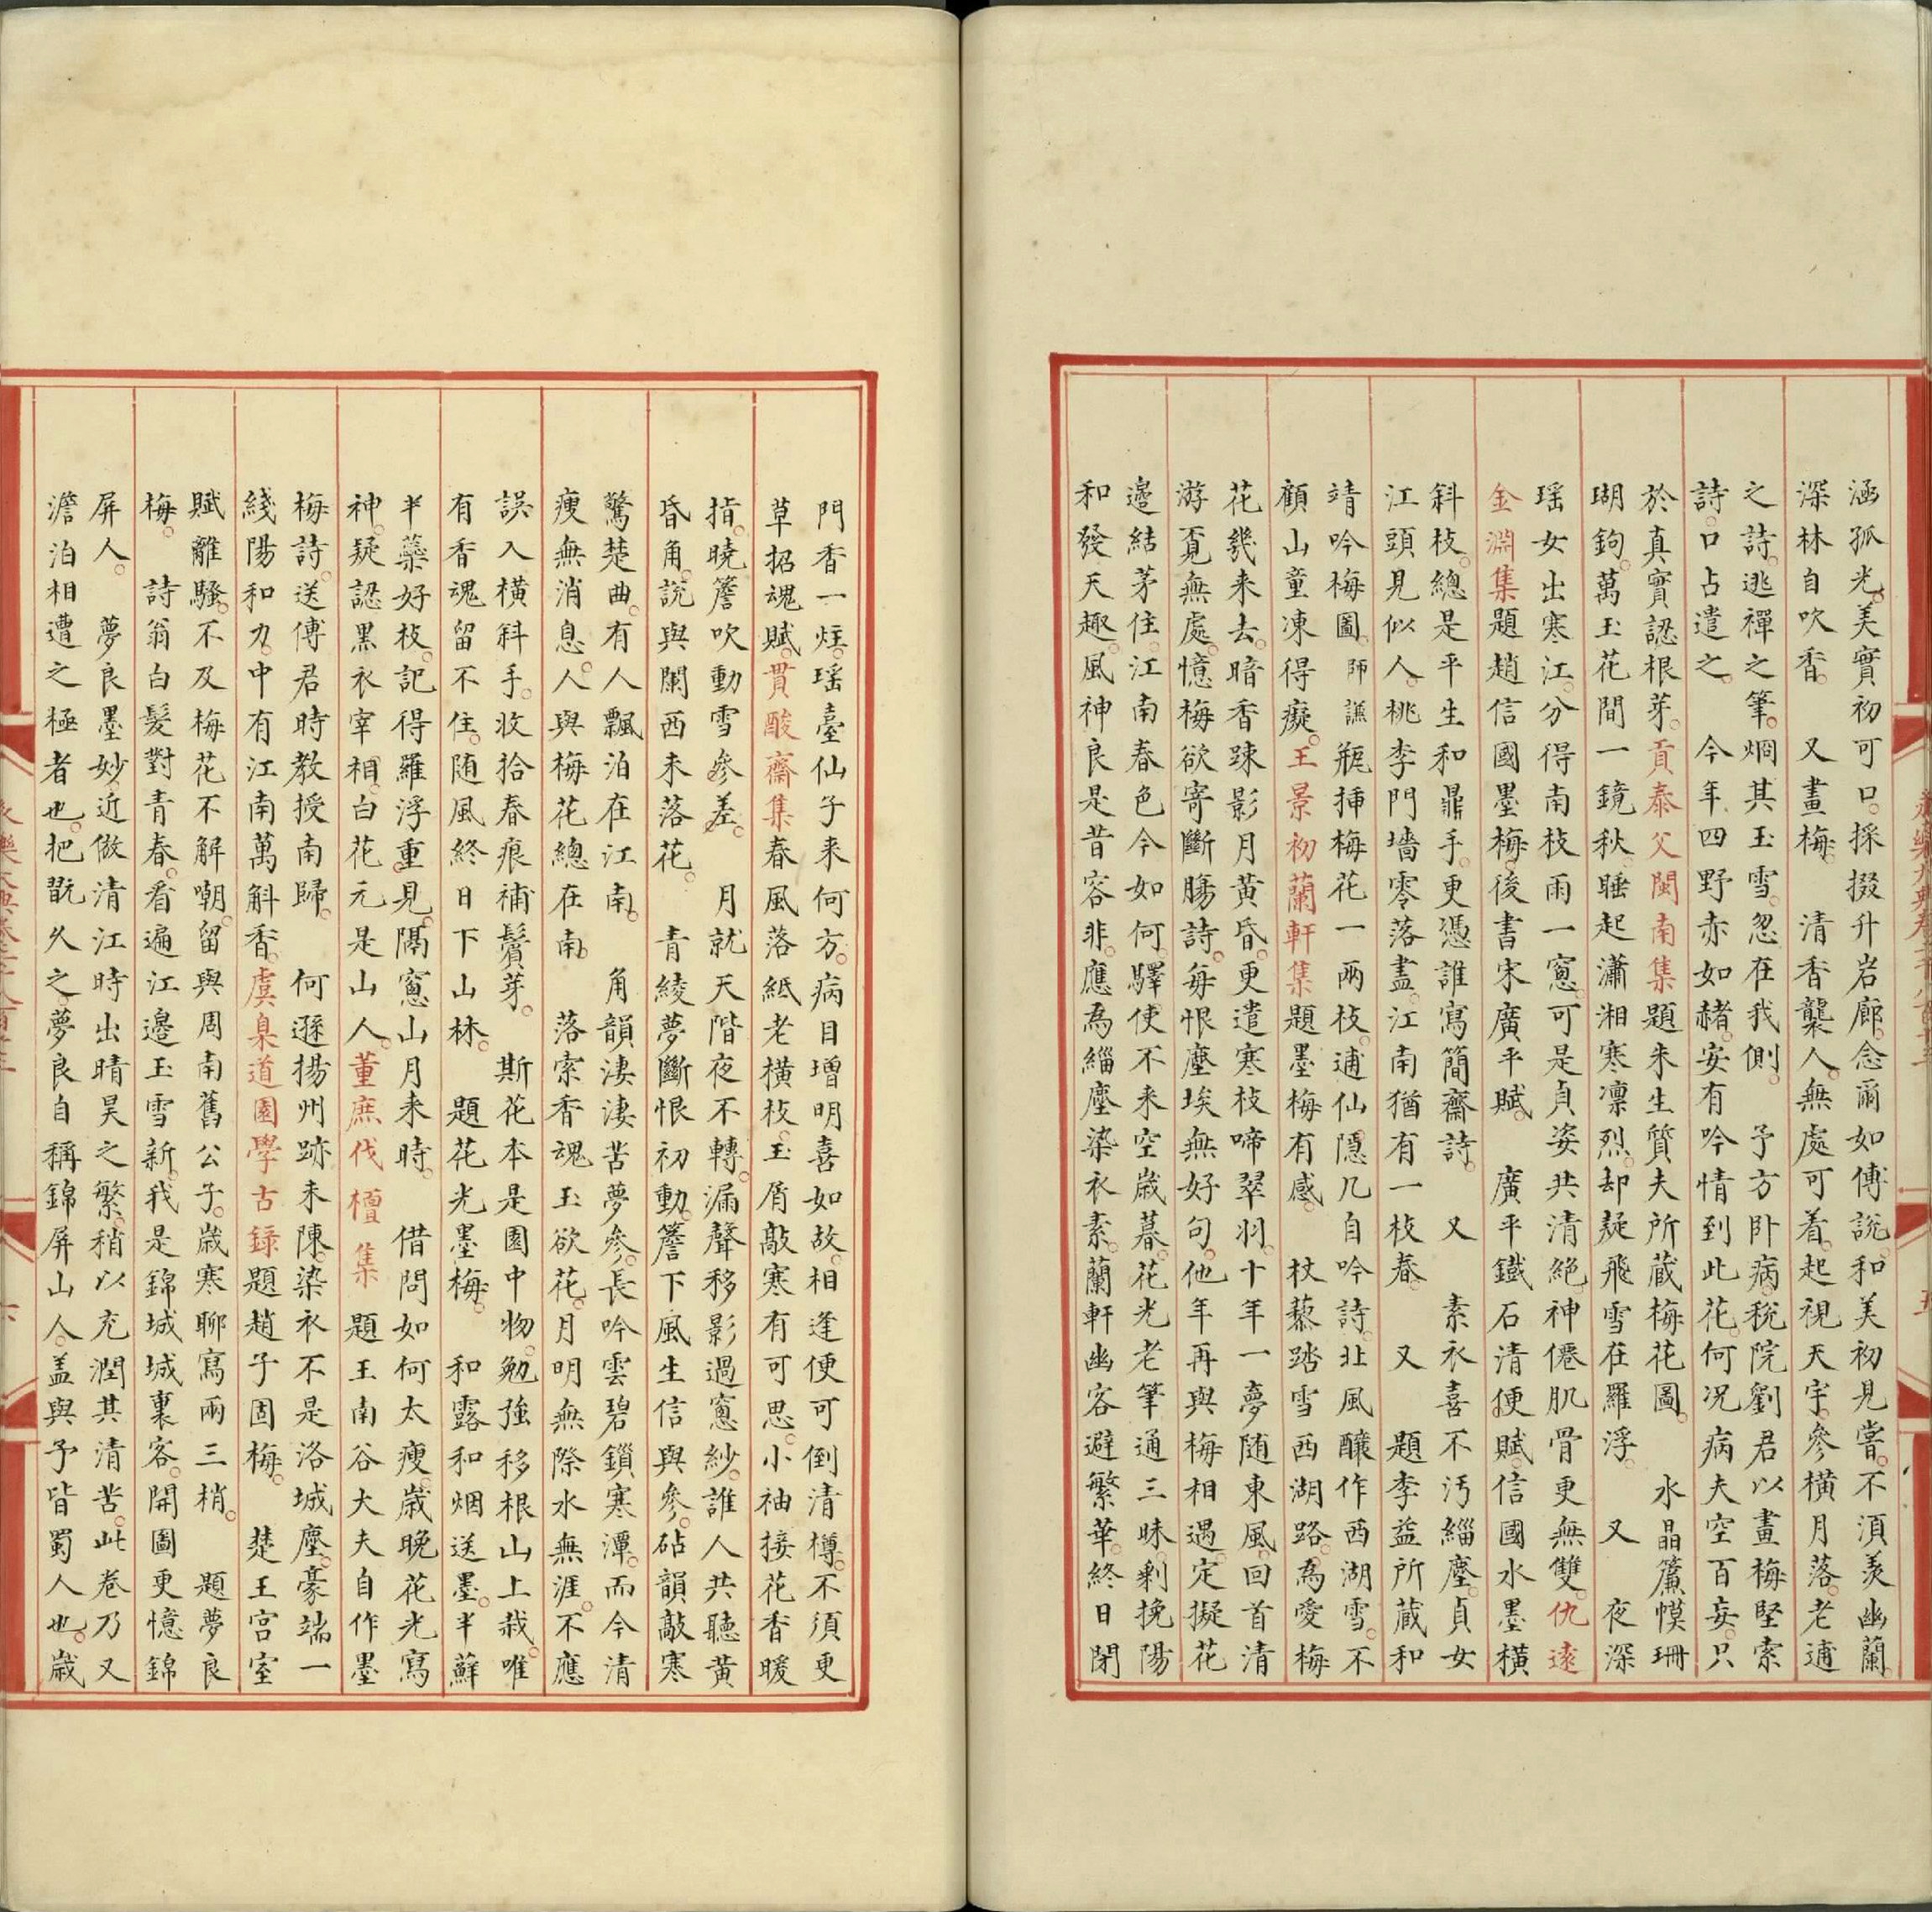 涵孤光美實初可口採掇升岩廊念爾如傅說和美初見嘗不須羨幽蘭
深林自吹香　又畫梅　清香襲人無處可着起視天宇參橫月落老逋
之詩逃禪之筆烱其玉雪忽在我側　予方卧病稅院劉君以畫梅堅索
詩口占遣之　今年四野赤如赭安有吟情到此花何况病夫空百妄只
於真實認根芽貢泰父閩南集題朱生質夫所蔵梅花圖　水晶簾幙珊
瑚鉤萬玉花間一鏡秋睡起瀟湘寒凛烈却疑飛雪在羅浮　又　夜深
瑶女出寒江分得南枝雨一窻可是貞姿共清絕神僊肌骨更無雙仇遠
金淵集題趙信國墨梅後書宋廣平賦　廣平鐵石清便賦信國水墨橫
斜枝總是平生和鼎手更憑誰寫簡齋詩　又　素衣喜不汚緇塵貞女
江頭見似人桃李門墻零落盡江南猶有一枝春　又　題李益所蔵和
靖吟梅圖師謙瓶揷梅花一兩枝逋仙隱几自吟詩北風釀作西湖雪不
顧山童凍得癡王景初蘭軒集題墨梅有感　杖藜踏雪西湖路為愛梅
花幾来去暗香踈影月黄昏更遣寒枝啼翠羽十年一夢随東風回首清
游覔無處憶梅欲寄斷腸詩每恨塵埃無好句他年再與梅相遇定擬花
邉結茅住江南春色今如何驛使不来空歲暮花光老筆通三昧剩挽陽
和發天趣風神良是昔容非應為緇塵染衣素蘭軒幽客避繁華終日閉
門香一炷瑶臺仙子来何方病目增明喜如故相逢便可倒清樽不須更
草招魂賦貫酸齋集春風落紙老橫枝玉屑敲寒有可思小袖接花香暖
指曉簷吹動雪參差　月就天階夜不轉漏聲移影過窻紗誰人共聽黄
昏角説與闌西未落花　青綾夢斷恨初動簷下風生信與參砧韻敲寒
驚楚曲有人飄泊在江南　角韻淒淒苦夢參長吟雲碧鎖寒潭而今清
瘦無消息人與梅花總在南　落索香魂玉欲花月明無際水無涯不應
誤入横斜手收拾春痕補鬢芽　斯花本是園中物勉強移根山上栽唯
有香魂留不住随風終日下山林　題花光墨梅　和露和烟送墨半蘇
半蘂好枝記得羅浮重見隔窻山月来時　借問如何太瘦歲晚花光寫
神疑認黒衣宰相白花元是山人董庶伐檀集　題王南谷大夫自作墨
梅詩送傅君時教授南歸　何遜揚州跡未陳染衣不是洛城塵豪端一
綫陽和力中有江南萬斛香虞臬道園學古録題趙子固梅　楚王宫室
賦離騷不及梅花不解嘲留與周南舊公子歲寒聊寫兩三梢　題夢良
梅　詩翁白髮對青春看遍江邉玉雪新我是錦城城裏客開圖更憶錦
屏人　夢良墨妙近倣清江時出晴昊之繁稍以充潤其清苦此卷乃又
澹泊相遭之極者也把翫久之夢良自稱錦屏山人盖與予皆蜀人也歲